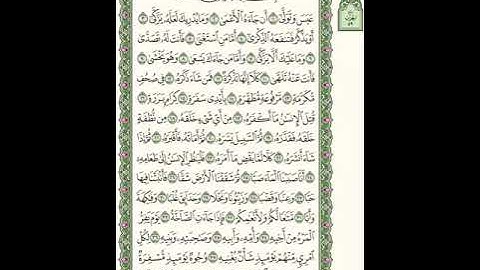 عَبَسَ وَتَوَلَّىٰٓ ١ أَن جَآءَهُ ٱلْأَعْمَىٰ ٢ وَمَا يُدْرِيكَ لَعَلَّهُۥ يَزَّكَّىٰٓ ٣
أَوْ يَذَّكَّرُ فَتَنفَعَهُ ٱلذِّكْرَىٰٓ ٤ أَمَّا مَنِ ٱسْتَغْنَىٰ ٥ فَأَنتَ لَهُۥ تَصَدَّىٰ ٦
وَمَا عَلَيْكَ أَلَّا يَزَّكَّىٰ ٧ وَأَمَّا مَن جَآءَكَ يَسْعَىٰ ٨ وَهُوَ يَخْشَىٰ ٩
فَأَنتَ عَنْهُ تَلَهَّىٰ ١٠ كَلَّآ إِنَّهَا تَذْكِرَةٌ ١١ فَمَن شَآءَ ذَكَرَهُۥ ١٢ فِى صُحُفٍ
مُّكَرَّمَةٍ ١٣ مَّرْفُوعَةٍ مُّطَهَّرَةٍۭ ١٤ بِأَيْدِى سَفَرَةٍ ١٥ كِرَامٍۭ بَرَرَةٍ ١٦
قُتِلَ ٱلْإِنسَٰنُ مَآ أَكْفَرَهُۥ ١٧ مِنْ أَىِّ شَىْءٍ خَلَقَهُۥ ١٨ مِن نُّطْفَةٍ
خَلَقَهُۥ فَقَدَّرَهُۥ ١٩ ثُمَّ ٱلسَّبِيلَ يَسَّرَهُۥ ٢٠ ثُمَّ أَمَاتَهُۥ فَأَقْبَرَهُۥ ٢١ ثُمَّ إِذَا
شَآءَ أَنشَرَهُۥ ٢٢ كَلَّا لَمَّا يَقْضِ مَآ أَمَرَهُۥ ٢٣ فَلْيَنظُرِ ٱلْإِنسَٰنُ إِلَىٰ طَعَامِهِۦٓ
٢٤ أَنَّا صَبَبْنَا ٱلْمَآءَ صَبًّا ٢٥ ثُمَّ شَقَقْنَا ٱلْأَرْضَ شَقًّا ٢٦ فَأَنۢبَتْنَا فِيهَا
حَبًّا ٢٧ وَعِنَبًا وَقَضْبًا ٢٨ وَزَيْتُونًا وَنَخْلًا ٢٩ وَحَدَآئِقَ غُلْبًا ٣٠ وَفَٰكِهَةً
وَأَبًّا ٣١ مَّتَٰعًا لَّكُمْ وَلِأَنْعَٰمِكُمْ ٣٢ فَإِذَا جَآءَتِ ٱلصَّآخَّةُ ٣٣ يَوْمَ يَفِرُّ
ٱلْمَرْءُ مِنْ أَخِيهِ ٣٤ وَأُمِّهِۦ وَأَبِيهِ ٣٥ وَصَٰحِبَتِهِۦ وَبَنِيهِ ٣٦ لِكُلِّ
ٱمْرِئٍ مِّنْهُمْ يَوْمَئِذٍ شَأْنٌ يُغْنِيهِ ٣٧ وُجُوهٌ يَوْمَئِذٍ مُّسْفِرَةٌ